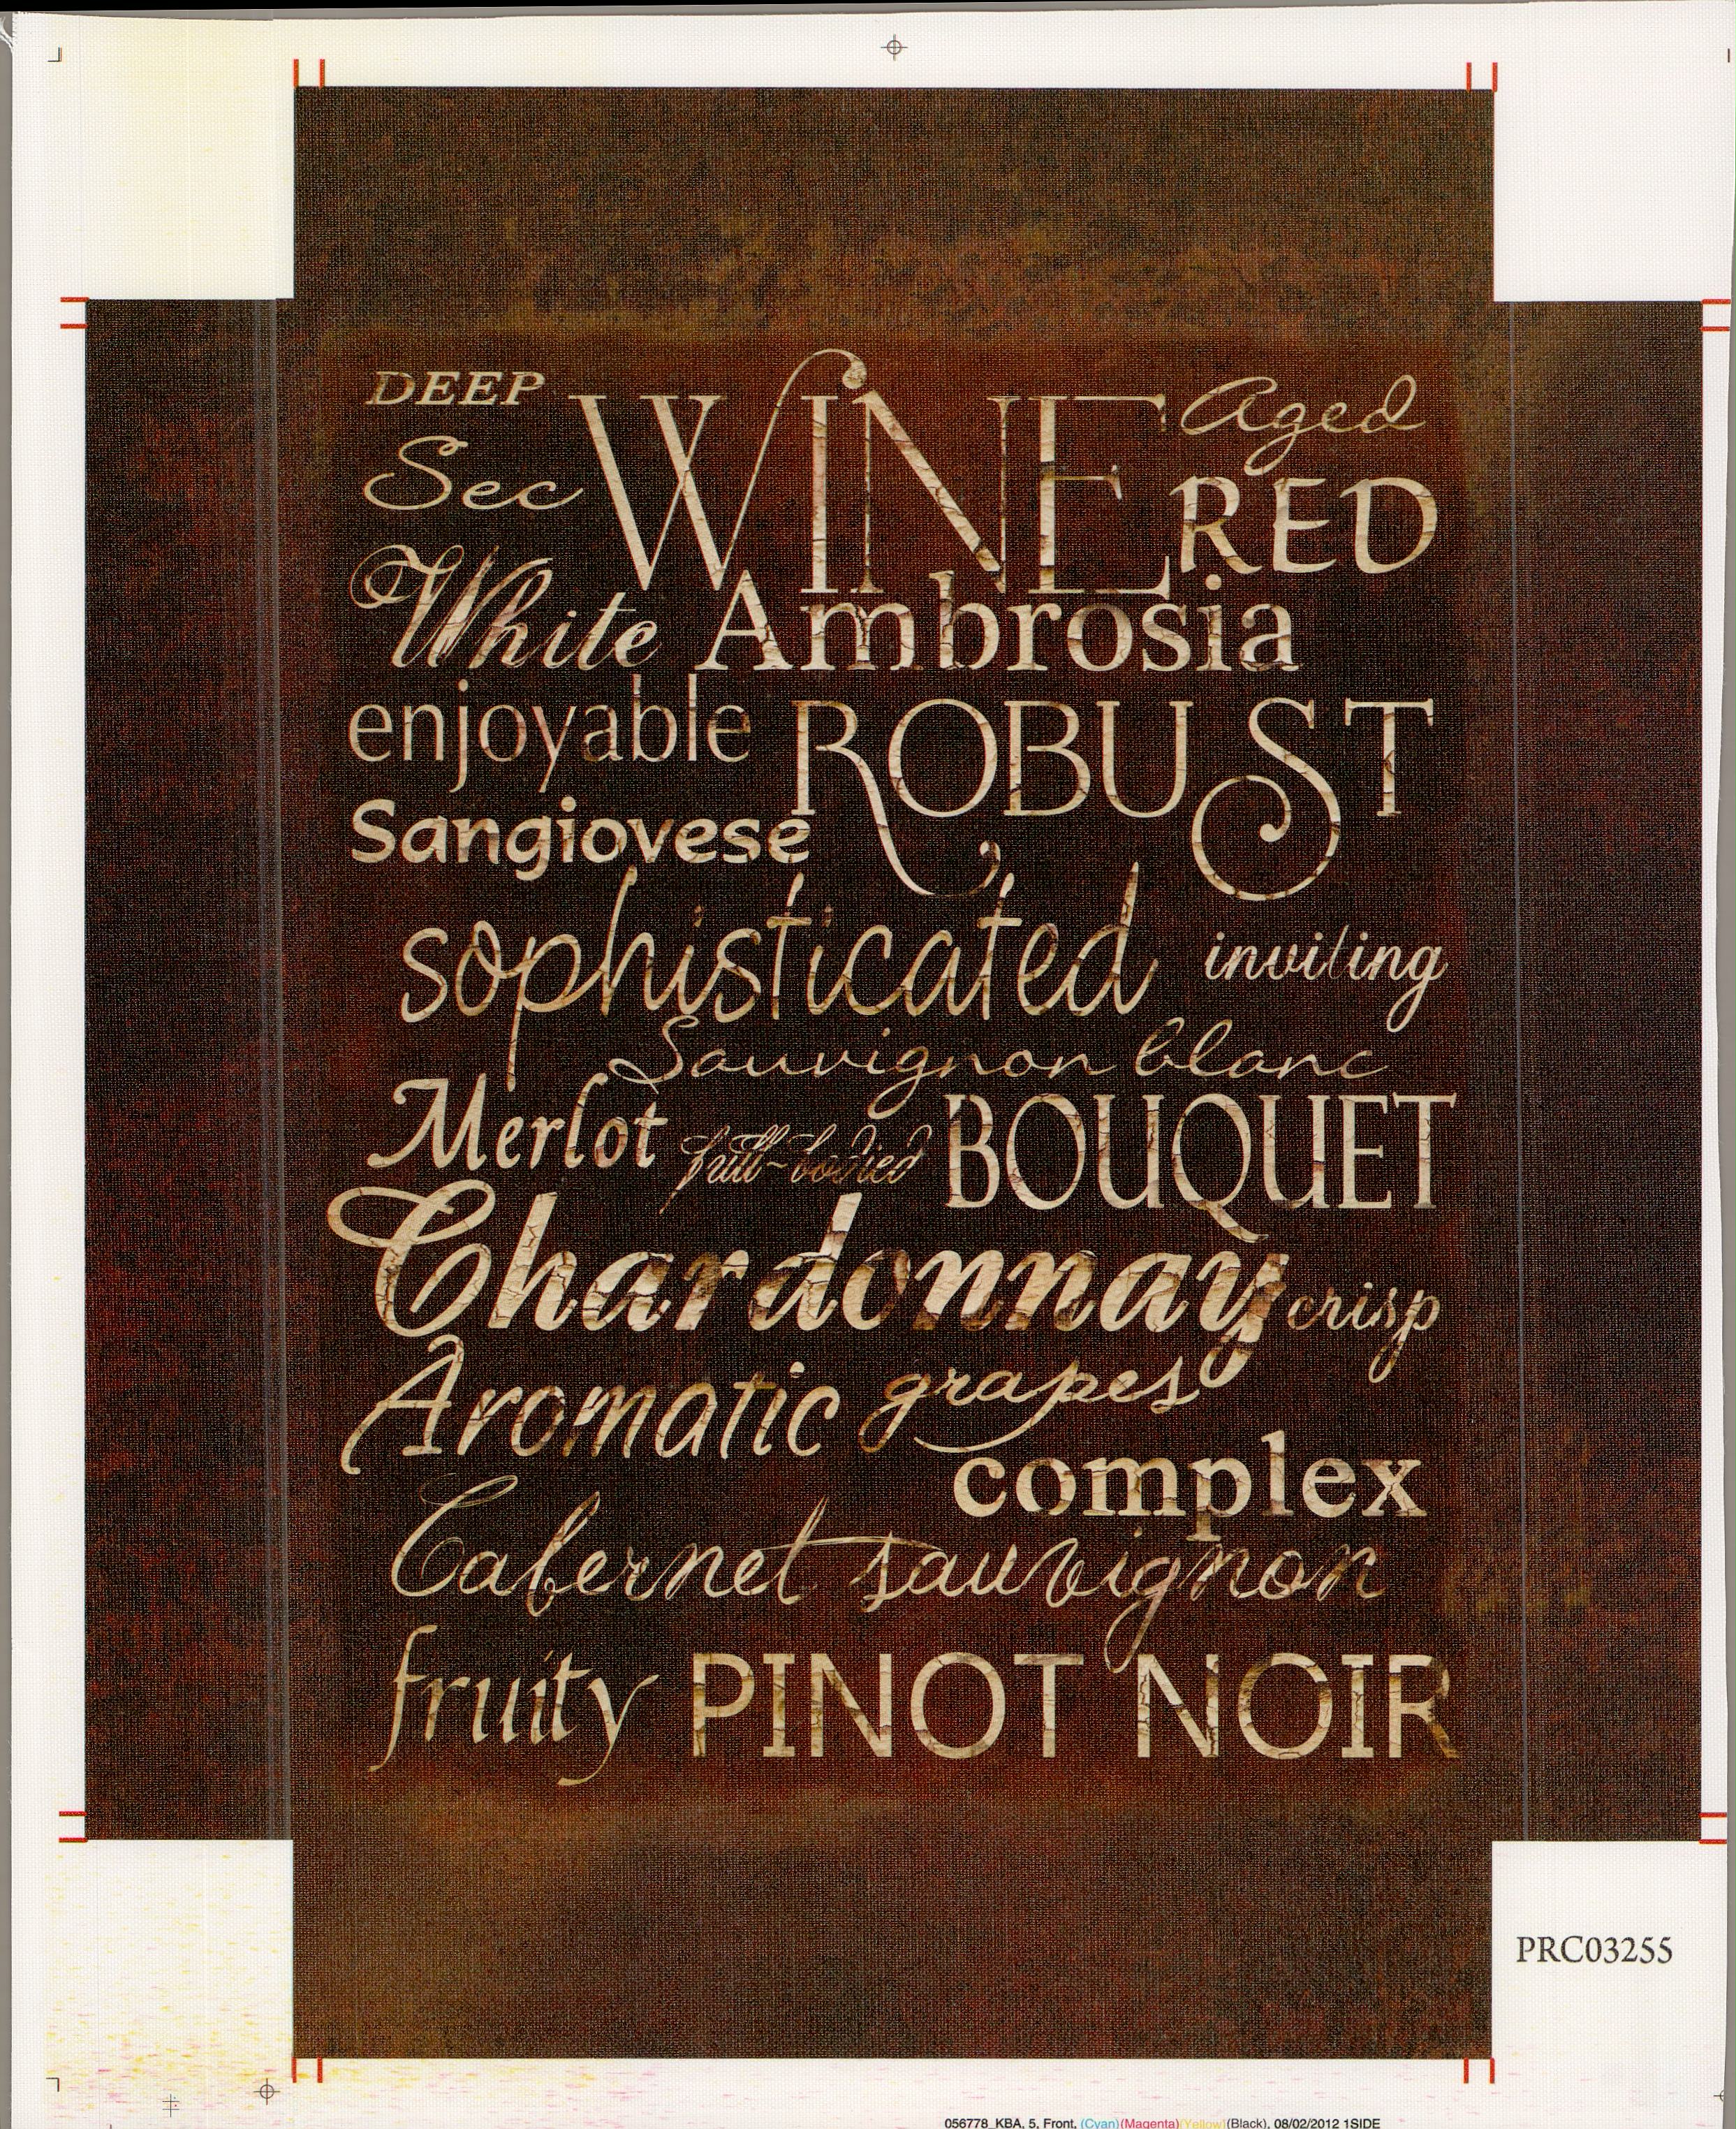 DEEP WINE Aged
Sec RED
White Ambrosia
enjoyable ROBUST
Sangiovese
sophisticated inviting
Sauvignon blanc
Merlot full-bodied BOUQUET
Chardonnay crisp
Aromatic grapes
complex
Cabernet sauvignon
fruity PINOT NOIR
PRC03255
056778_KBA, 5, Front, (Cyan)(Magenta)(Yellow)(Black), 08/02/2012 1SIDE